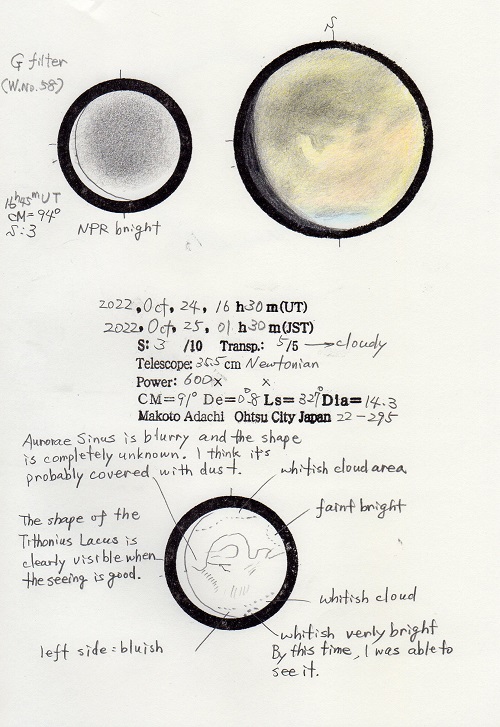 S
G filter
(W.No.58)
16h45m UT
CM=94°
S:3
NPR bright
2022, Oct, 24, 16 h30 m(UT)
2022, Oct, 25, 01 h30 m(JST)
S: 3 /10 Transp.: 5/5 → cloudy
Telescope: 35.5 cm Newtonian
Power: 600x x
CM=91° De=0.°8 Ls=327° Dia=14.3
Makoto Adachi Ohtsu City Japan 22-295
Aurorae Sinus is blurry and the shape
is completely unknown. I think it's
probably covered with dust.
whitish cloud area
faint bright
The shape of the
Tithonius Lacus is
clearly visible when
the seeing is good.
whitish cloud
whitish verly bright
By this time, I was able to
see it.
left side: bluish